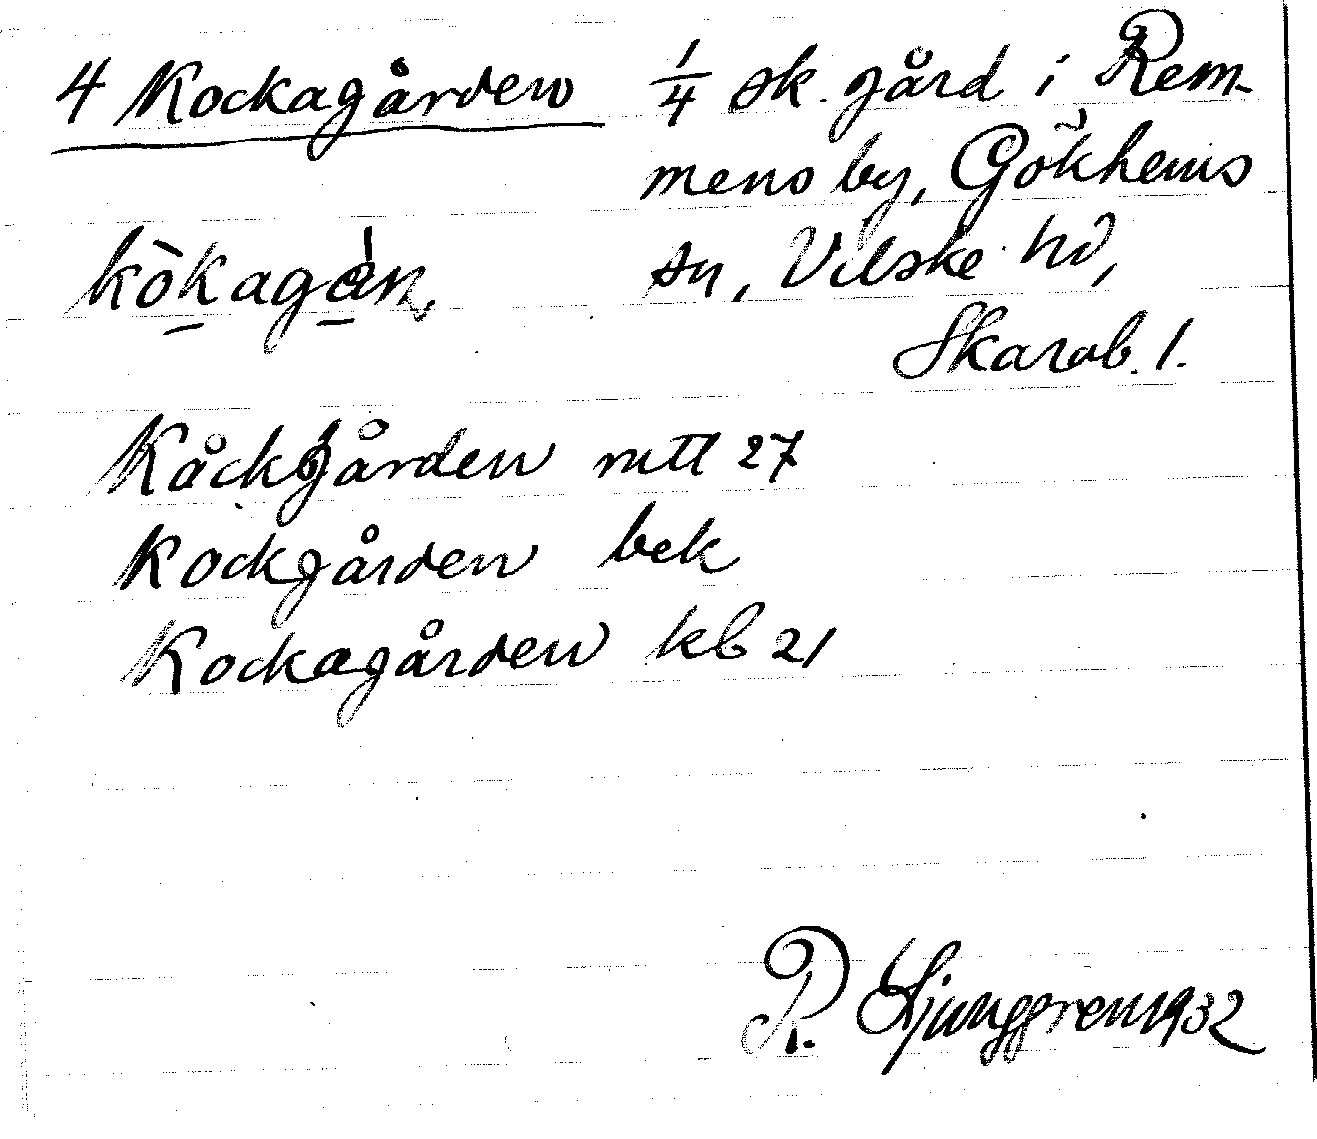 4 Kockagården
1/4 sk. gård i Rem-
mens by, Gökhems
sn, Vilske hd,
Skarab. l.
kòkagàn,
Kåckgården mtl 27
Kockgården bek
Kockagården kb 21
R. Ljunggren 1932